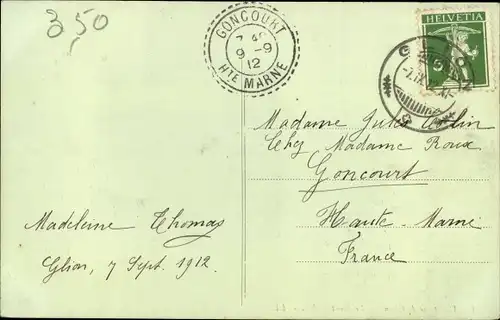 3,50
GONCOURT
9-9
12
HTE MARNE
HELVETIA
5
Madame Jules
Chez Madame Roux
Goncourt
Haute-Marne
France
Madeleine Thomas
Glion, 7 Sept. 1912.